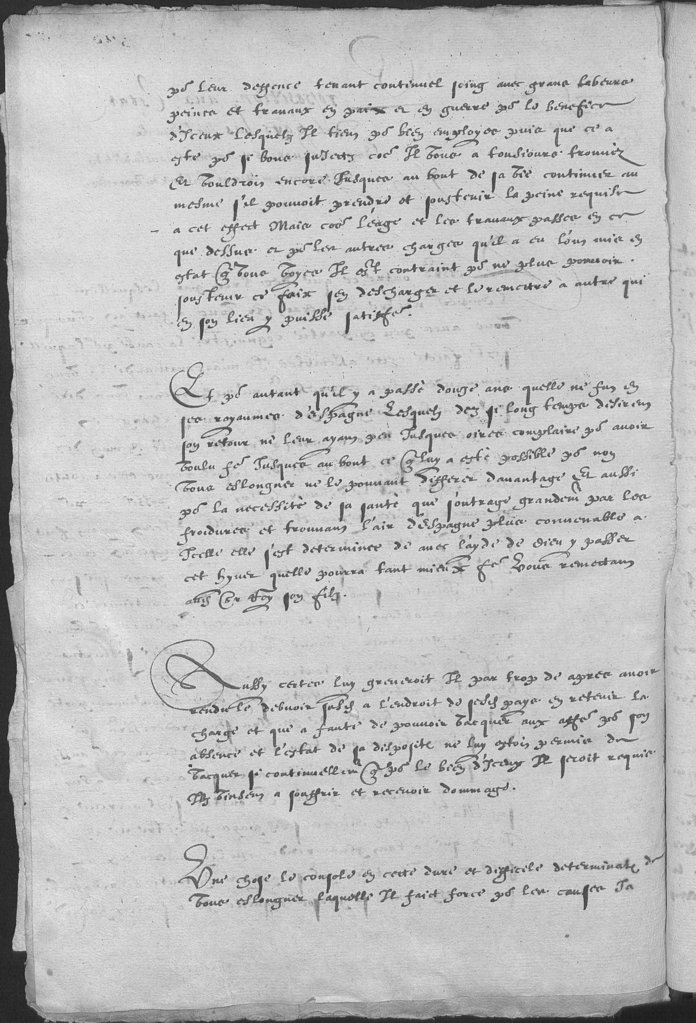 po^r leur deffence tenant continuel soing avec grans labeurs
peines et travaux en paix et en guerre po^r le benefice
d'Iceux Lesquelz Il tient po^r bien employes puis que ce a
este po^r si bons subiectz co~e Il vous a tousiours trouvez
Et vouldroit encores Iusques au bout de sa vie continuer au
mesme s'il pouvoit prendre et soustenir la peine requise
a cet effect Mais co~e l'eage et les travaux passes en ce
que dessus et po^r les autres charges qu'il a eu l'ont mis en
estat q~ vous voyes Il est contraint po^r ne plus pouvoir
soustenir ce faix s'en descharger et le remettre a autre qui
en son lieu y puisse satisfe~

Et po^r autant qu'il y a passé douze ans quelle ne fut en
ses royaumes d'espagne Lesquelz dez si long temps desirent
son retour ne leur ayant peu Iusques ores complaire po^r avoir
voulu fe~ Iusques au bout ce q~ luy a esté possible po^r non
vous eslongner ne le pouvant differer davantage Et aussi
po^r la necessité de sa santé que s'outrage grandem~t par les
froidures et trouvant l'air d'espagne plus convenable a
Icelle elle s'est determinee de avec l'ayde de dieu y passer
cet hyver quelle pourra tant mieux fe~ Vous remettant
au Roy son filz.

Aussy certes luy greveroit Il par trop de apres avoir
rendu le debvoir a l'endroit de pays en retenir la
charge et que a faute de pouvoir vacquer aux aff~es po^r son
absence et l'estat de sa dispositi~ ne luy estoit permis de
vacquer si continuellem~t q~ po^r le bien d'Iceux Il seroit requis
Ilz vinsent a souffrir et recevoir dommage.

Une chose le console en cette dure et difficile determinati~ de
vous eslongner laquelle Il faict force po^r les causes Ia